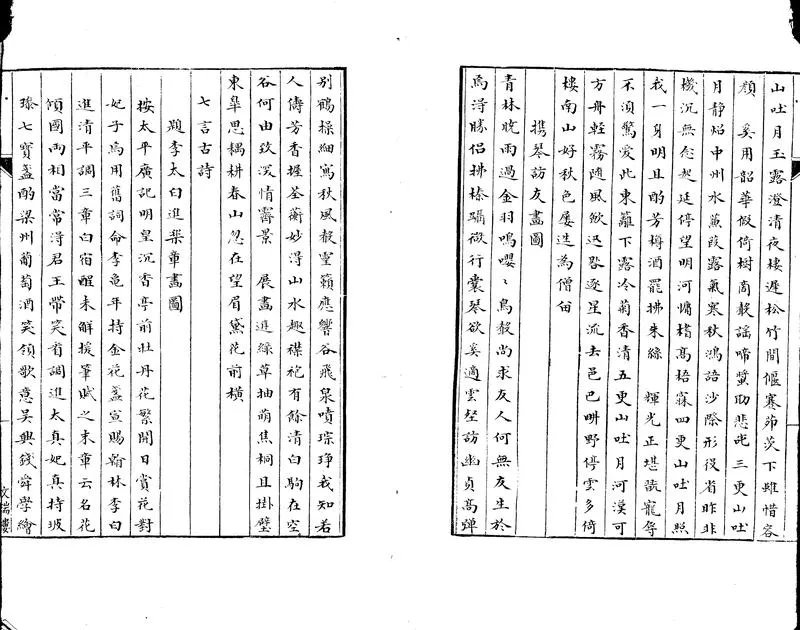 山吐月玉露澄清夜樓遲松竹間偃蹇茆茨下雖惜容
顏 奚用韶華假倚樹商聲謡啼螿助悲咤三更山吐
月靜炤中州水蒹葭露氣寒秋鴻語沙際形役省昨非
機沉無念起延停望明河慵高梧寐四更山吐月照
我一身明且酌芳樽酒罷拂朱絲 輝光正堪翫寵辱
不須驚愛此東籬下露冷菊香清五更山吐月河漢可
方舟輕霧隨風歛迅晷逐星流去邑巴畊野停雲多倚
樓南山好秋色屢迭為僧留
携琴訪友畫圖
青林晚雨過金羽鳴嚶〻鳥聲尚求友人何無友生於
焉得勝侶拂榛躡微行囊琴欲奚適雲壑訪幽貞髙彈
别鶴操細寫秋風聲靈籟應響谷飛泉噴琮琤我知若
人儔芳香握荃蘅妙得山水趣襟袍有餘清白駒在空
谷何由致汲情霽景 展畫逬綠草抽萌焦桐且掛壁
東臯思耦耕春山忽在望眉黛花前橫
七言古詩
題李太白進樂章畫圖
按太平廣記明皇沉香亭前牡丹花繁開日賞花對
妃子焉用舊詞命李龜年持金花盞宣賜翰林李白
進清平調三章白宿酲未解援筆賦之末章云名花
傾國兩相當常得君王帶笑看調進太真妃真持玻
瓈七寶盞酌梁州葡萄酒笑領歌意吳興錢舜學繪
文瑞樓